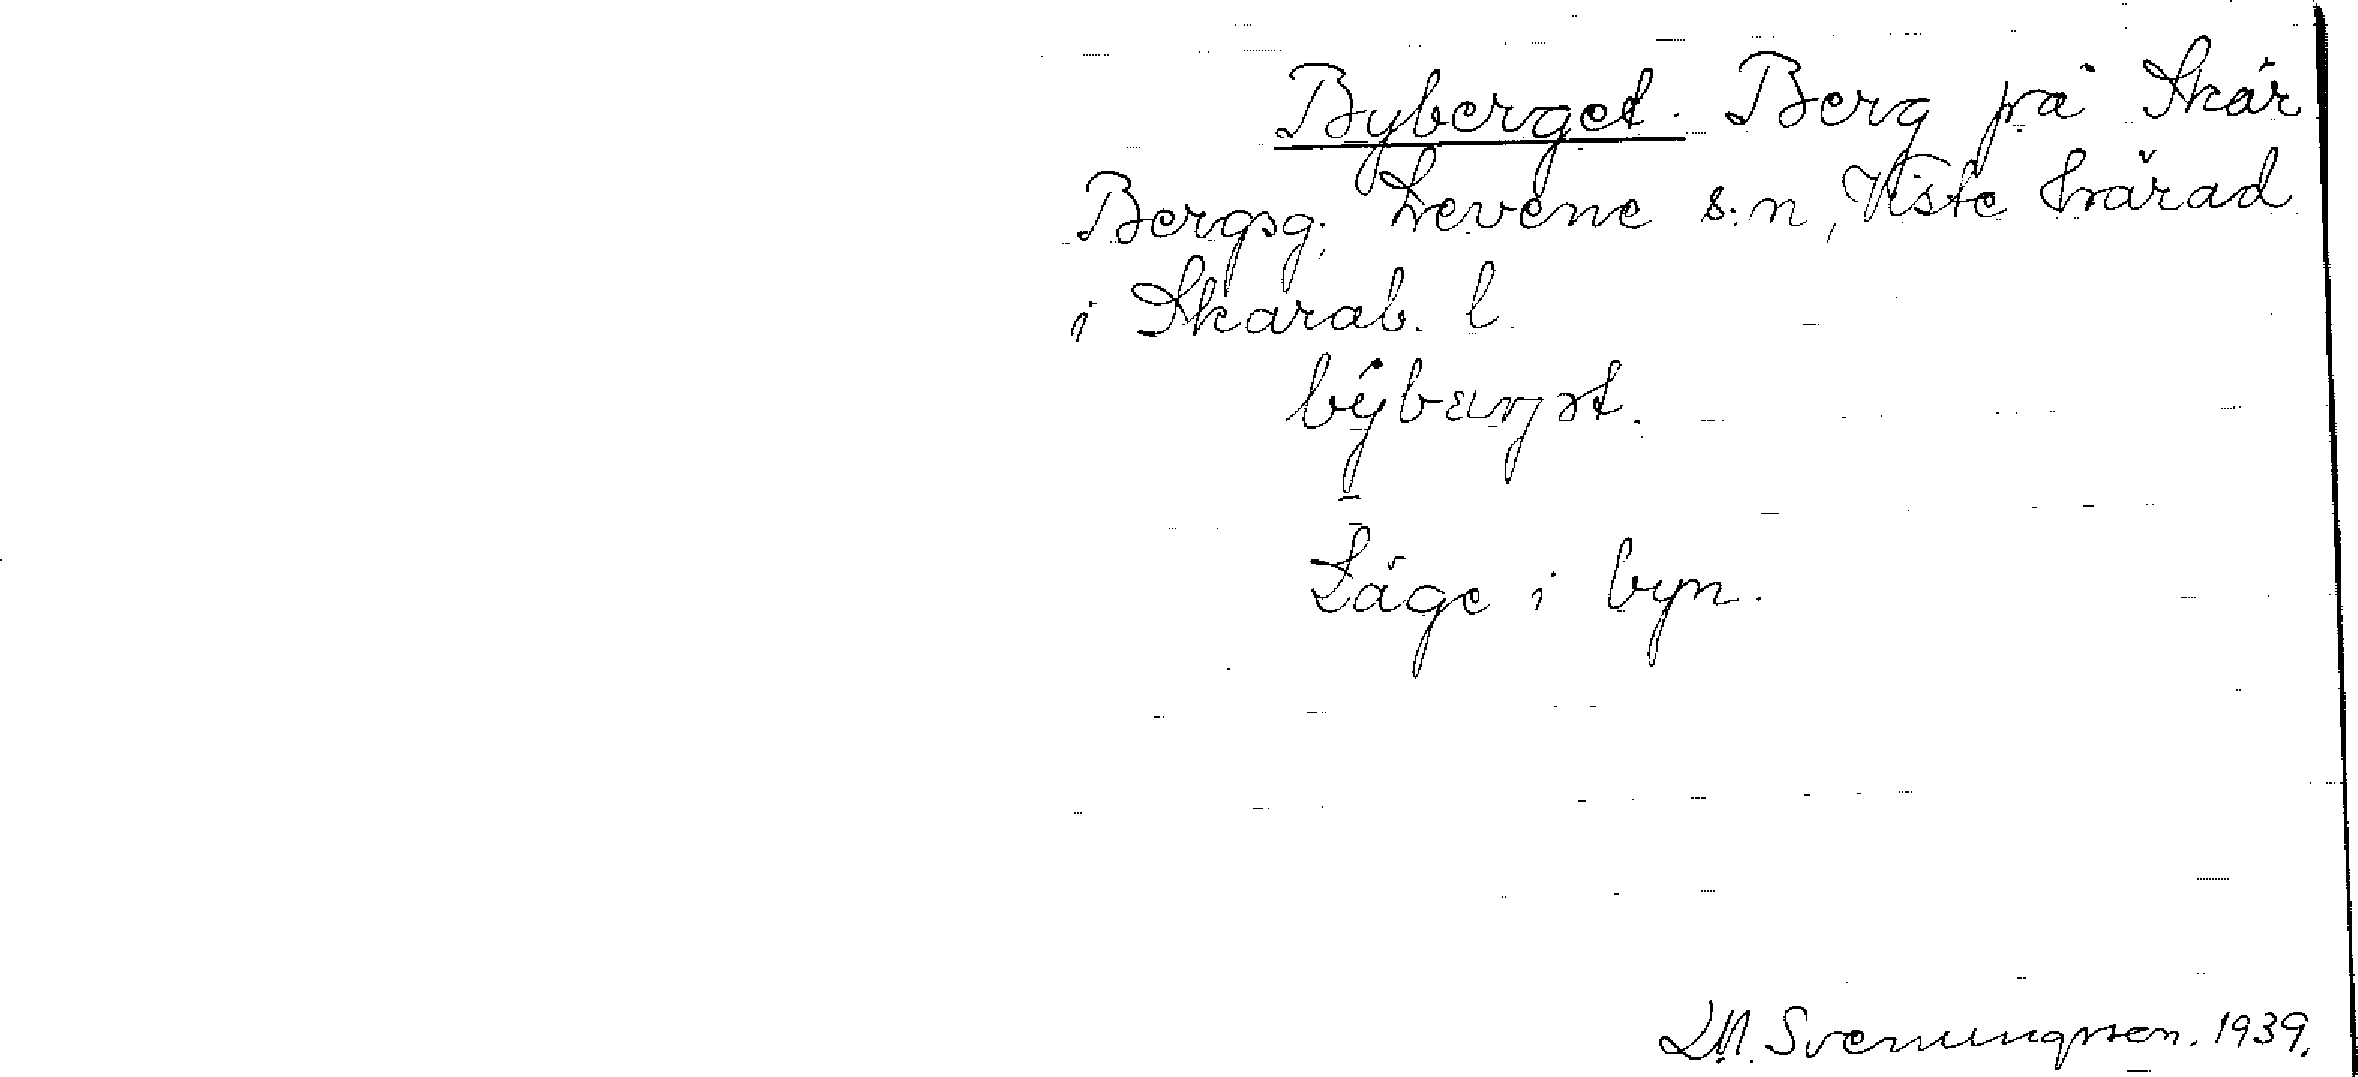 Byberget. Berg på Skår
Bergsg. Levene s:n, Viste härad
i Skarab. l.
Läge i byn.
Svenungsson. 1939.